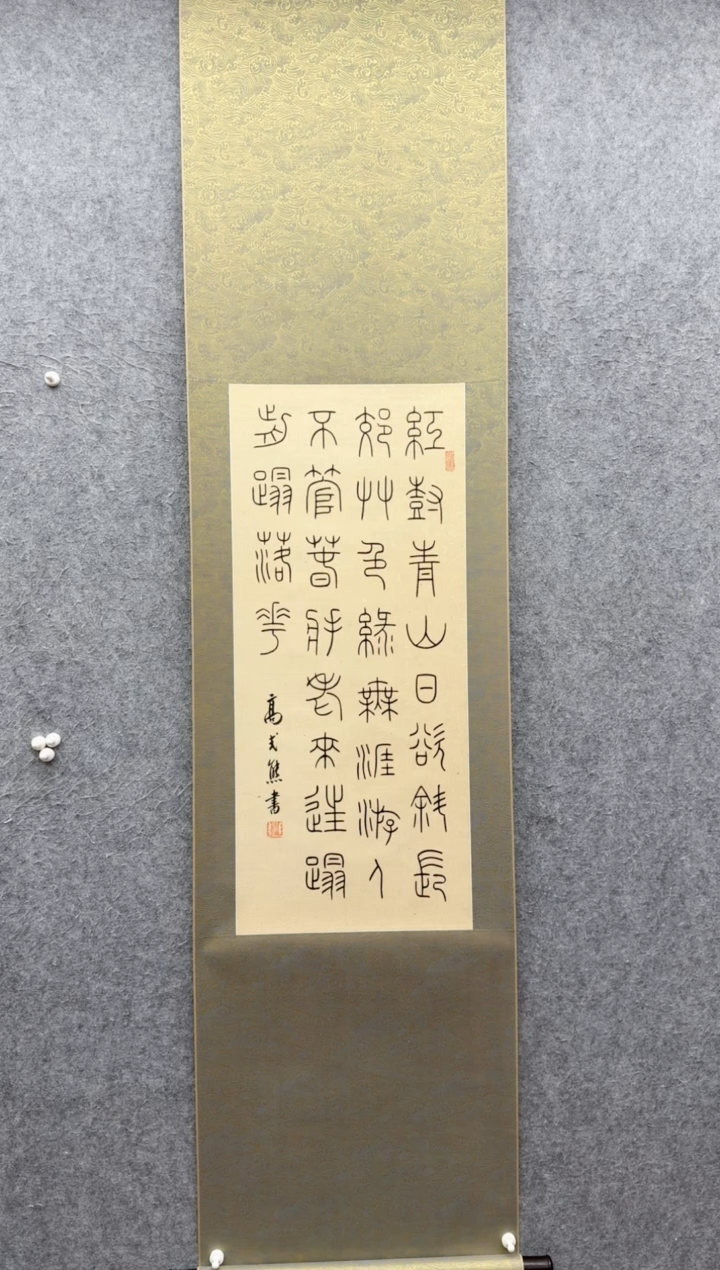 紅尌青山日欲斜長
郊艸色綠無涯游人
不管萅將老來往蹋
歬蹋落花
高式熊書